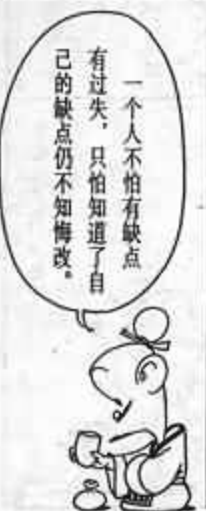 一个人不怕有缺点
有过失，只怕知道了自
己的缺点仍不知悔改。